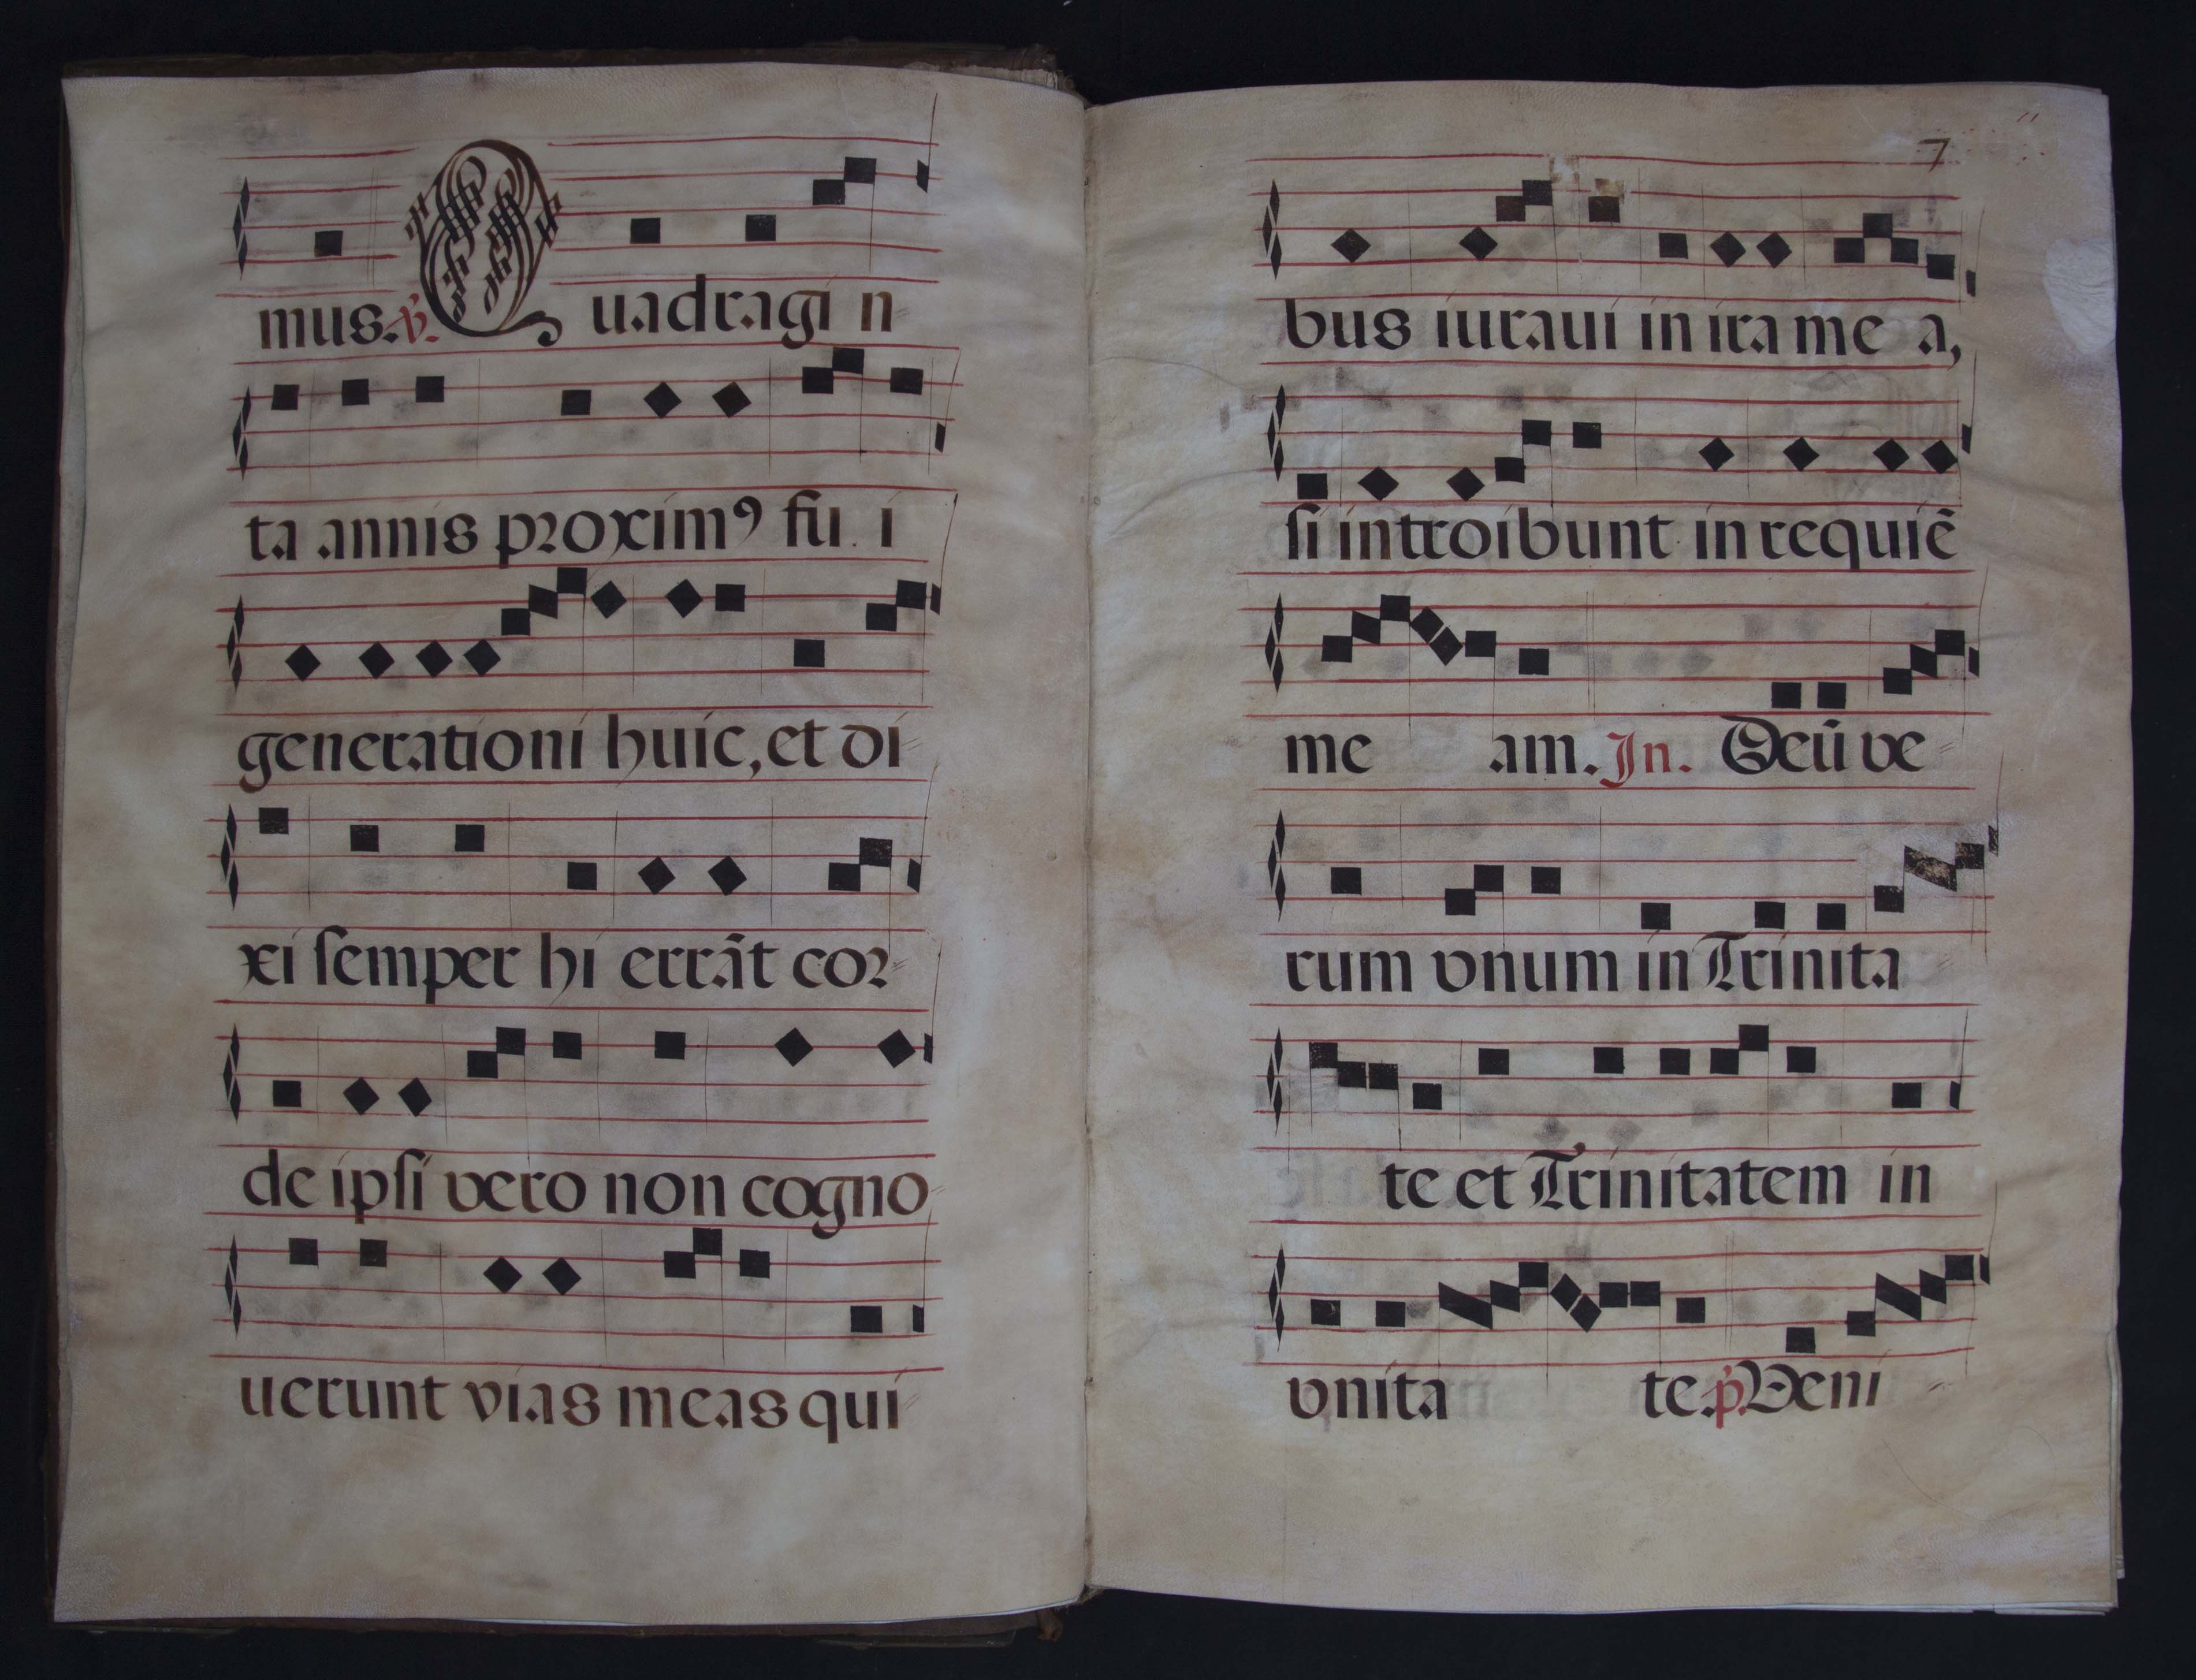 mus. ℣. Quadragin
ta annis proximꝰ fu i
generationi huic, et di
xi ſemper hi errāt cor
de ipſi vero non cogno
uerunt vias meas qui
7
bus iuraui in ira me a,
ſi introibunt in requiē
me am. In. Deū ve
rum vnum in Trinita
te et Trinitatem in
vnita te. p̓. Veni